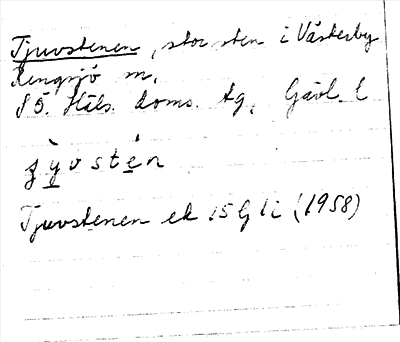 Tjuvstenen, stor sten i Västerby
Rengsjö sn.
SÖ. Häls. doms. tg, Gävl. l
ȷ̀y̲vstè̲n
Tjuvstenen ek 15G1i (1958)